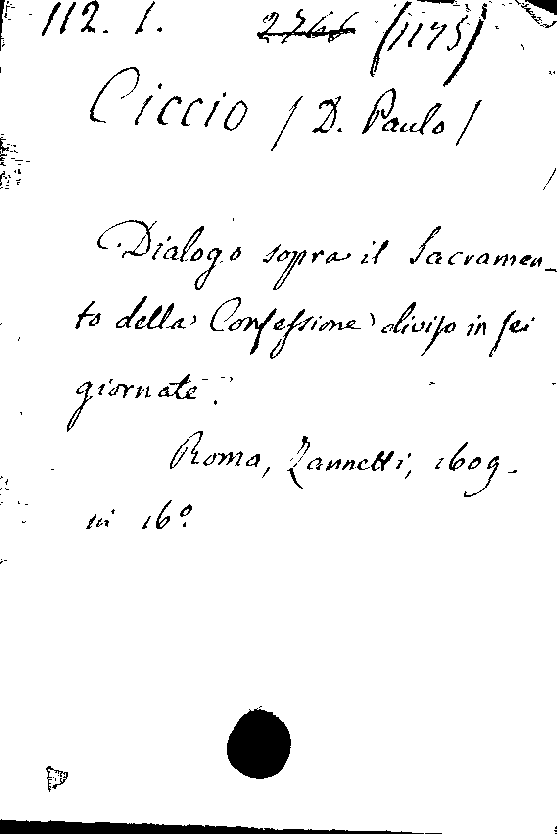 112. 1. 2766 (1175)
Ciccio / D. Paulo /
Dialogo sopra il Sacramen-
to della Confeſsione diviſo in ſei
giornate.
Roma, Zannetti, 1609.
in 16º.